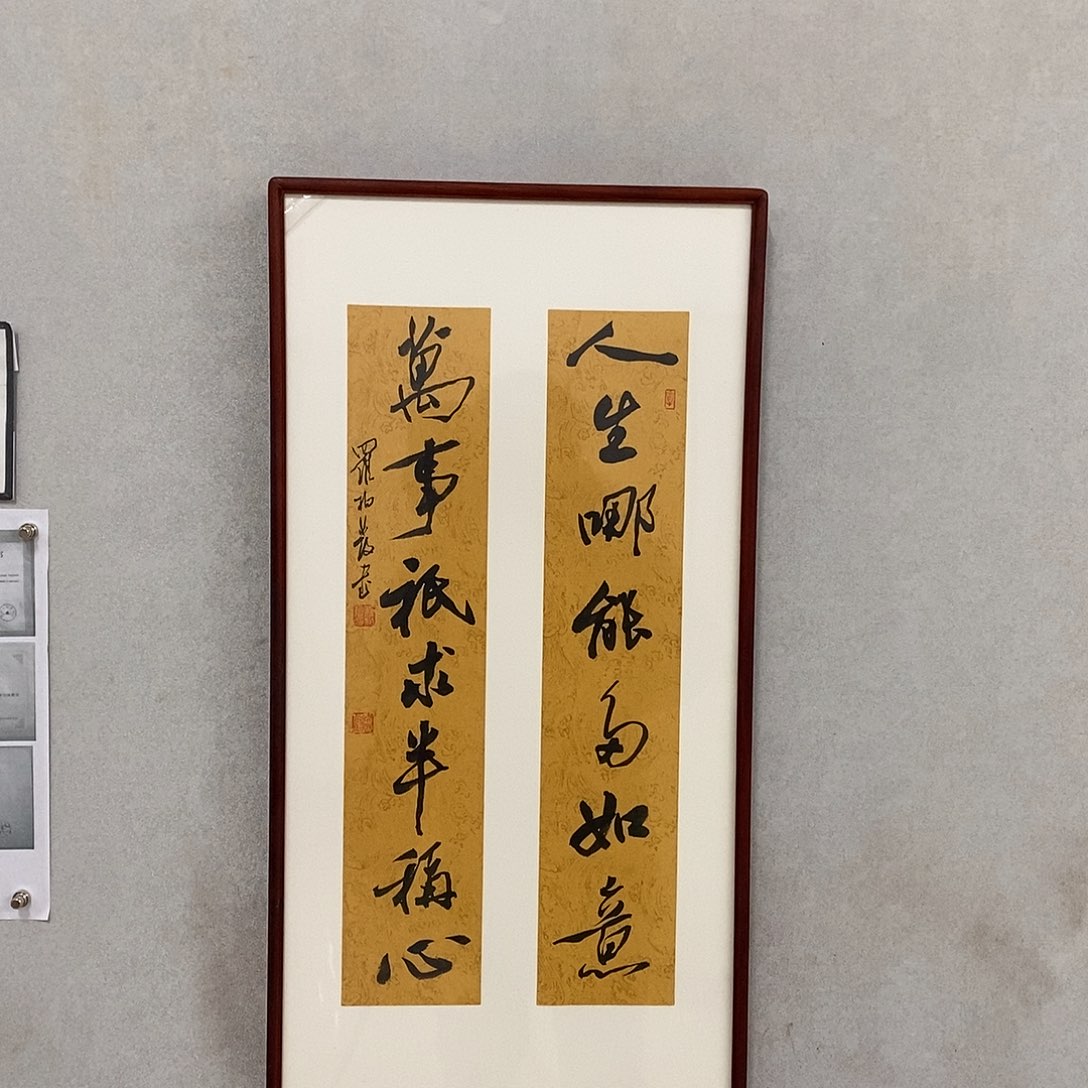 人生哪能多如意
萬事祇求半稱心
羅柏茂書